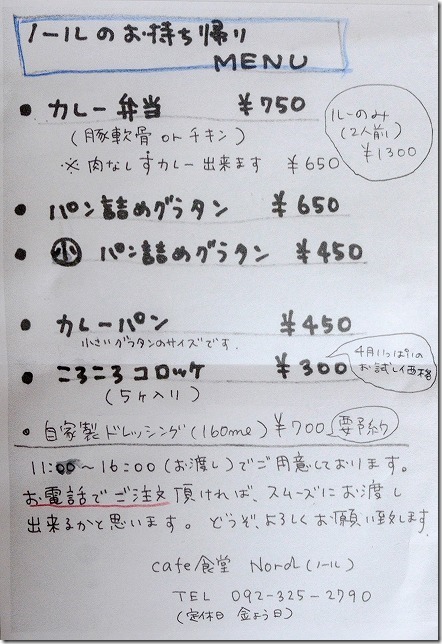 ノールのお持ち帰り
MENU
● カレー弁当 ¥750
(豚軟骨 or チキン)
※肉なしすカレー出来ます ¥650
ルーのみ
(2人前)
¥1300
● パン詰めグラタン ¥650
● 小 パン詰めグラタン ¥450
● カレーパン ¥450
小さいグラタンのサイズです.
● ころころコロッケ ¥300
(5ヶ入り)
4月いっぱいの
お試し価格
● 自家製ドレッシング(160ml) ¥700 要予約
11:00~16:00(お渡し)でご用意しております。
お電話でご注文頂ければ、スムーズにお渡し
出来るかと思います。どうぞ、よろしくお願い致します
cafe/食堂 Nord(ノール)
TEL 092-325-2790
(定休日 金よう日)